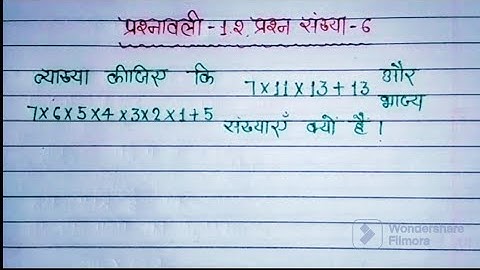 प्रश्नावली - 1.2, प्रश्न संख्या - 6
व्याख्या कीजिए कि 7×11×13+13 और
7×6×5×4×3×2×1+5 भाज्य
संख्याएँ क्यों हैं।
Wondershare
Filmora